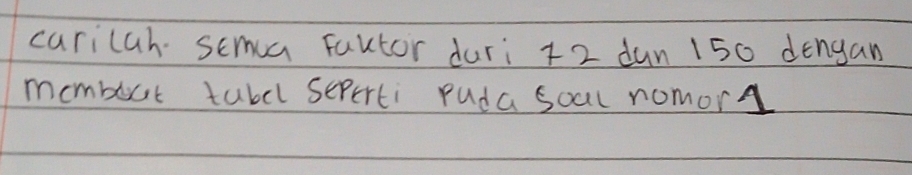 carilah semua faktor dari 72 dan 150 dengan
membuat tabel seperti pada soal nomor 1